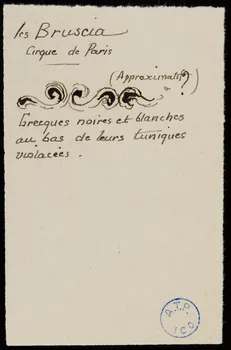 les Bruscia
Cirque de Paris
(Approximatif?)
Grecques noires et blanches
au bas de leurs tuniques
violacées.
A.T.P.